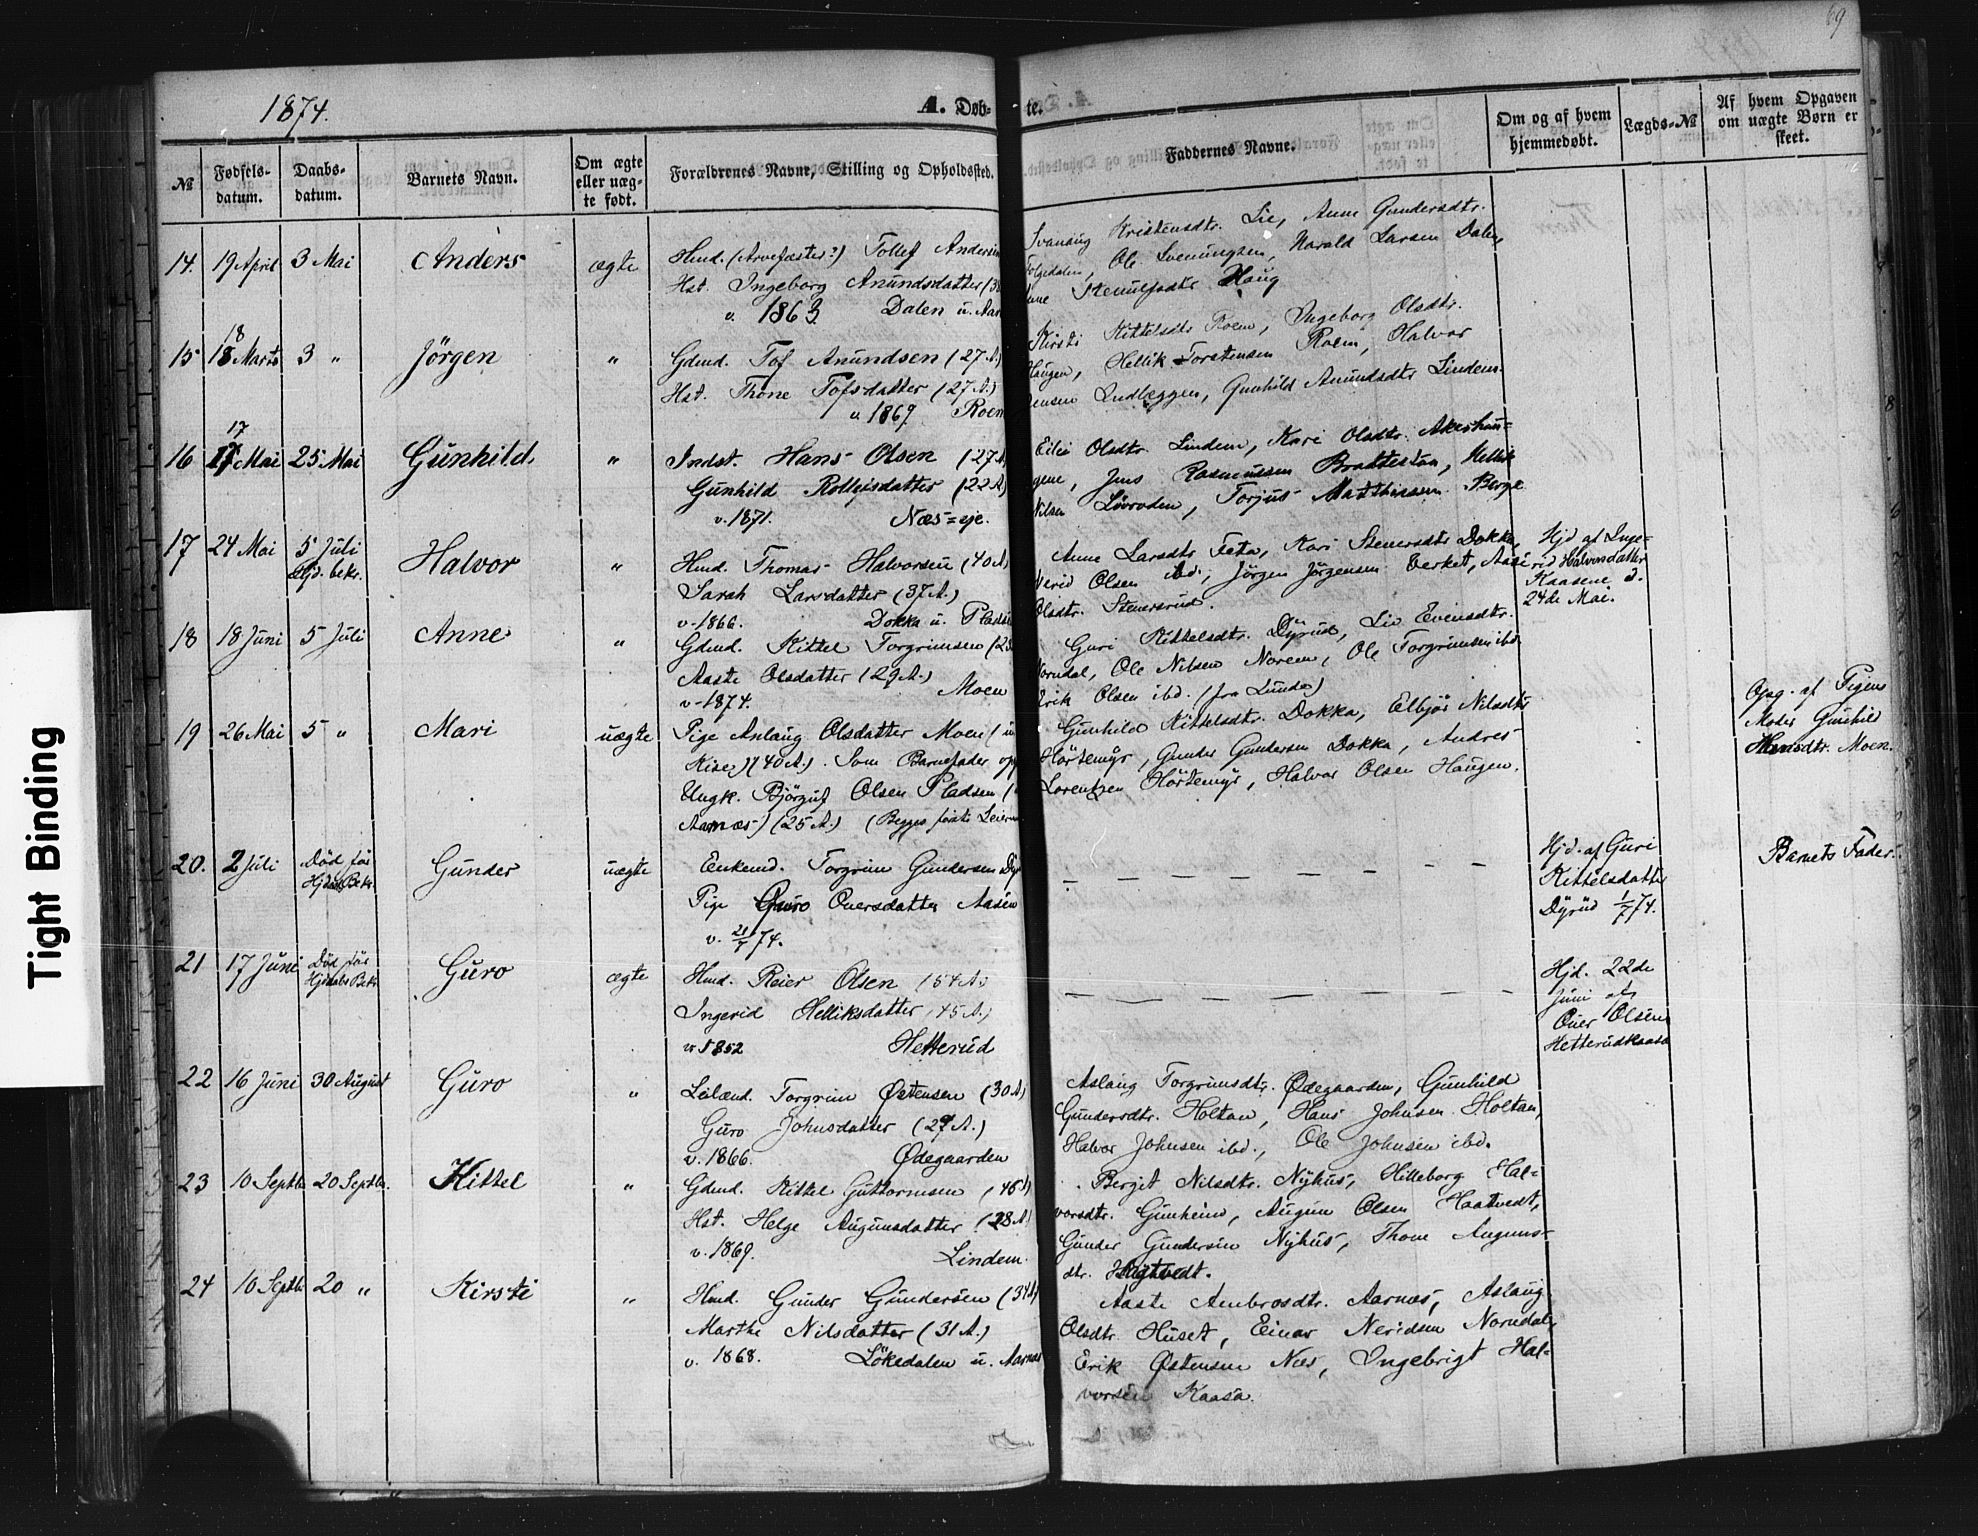 69
1874.
A. Døb-
te.
№
Fødsels-
datum.
Daabs-
datum.
Barnets Navn.
Om ægte
eller uæg-
te født.
Forældrenes Navne, Stilling og Opholdssted.
Faddernes Navne.
Om og af hvem
hjemmedøbt.
Lægds-№
Af hvem Opgaven
om uægte Børn er
skeet.
14. 19 April 3 Mai Anders ægte
Hmd. (Arvefæster?) Tollef Anders
Hst. Ingeborg Anundsdatter (38
v. 1863. Dalen u. Aar
Svanaug Kristensdtr. Lie, Anne Gundersdtr.
Følgedalen, Ole Sveinungsen, Harald Larsen Dalen,
Haug
15 18 Marts 3 " Jörgen "
18
Gdmd. Tof Anundsen (27 A.)
Hst. Thone Tofsdatter (27 A.)
v. 1869. Roem
Kirsti Kittelsdtr Roem, Ingeborg Olsdtr.
Haugen, Hellik Torstensen Roem, Halvor
Jensen Ludbeggen, Gunhild Anundsdtr Lindem.
17
16 17 Mai 25 Mai Gunhild "
Indst. Hans Olsen (27 A
Gunhild Rolleivsdatter (22 A)
v. 1871. Næs=eje.
Olsdtr. Lindem, Kari Olsdtr. Akershau=
gene, Jens Rasmussen Brattestaa, Hellik
Nilsen Lövroden, Torjus Matthiassen Berge
17 24 Mai 5 Juli Halvor "
Hjd. bekr.
Hmd. Thomas Halvorsen (40 A)
Sarah Larsdatter (37 A.)
v. 1866. Dokka u. Pladse
Anne Larsdtr Feta, Kari Stenersdtr Dokka,
Nerid Olsen ibd., Jörgen Jörgensen Verket, Aase
Olsdtr. Stenersrud.
Hjd af Inge=
rid Halvorsdatter
Kaasene d.
24de Mai.
18 18 Juni 5 Juli Anne "
Gdmd. Kittel Torgrimsen (28
Aaste Olsdatter (29 A.)
v. 1874. Moen
Guri Kittelsdtr. Dÿrud, Liv Evensdtr.
Norndal, Ole Nilsen Norem, Ole Torgrimsen ibd
Erik Olsen ibd. (fra Lunde)
19 26 Mai 5 " Mari uægte
Pige Anlaug Olsdatter Moen (u
Kise) (40 A.). Som Barnefader opg
Ungk. Björguf Olsen Pladsen (
Aarnæs) (25 A.) (Begges förste Leierm
Gunhild Kittelsdtr. Dokka, Elbjör Nilsdtr
Hörtemÿr, Gunder Gundersen Dokka, Andres
Lorentzen Hörtemÿr, Halvor Olsen Haugen.
Opg. af Pigens
Moder Gunhild
Hansdtr. Moen.
20. 2 Juli Död för Gunder uægte
Hjdaabs Bekr.
Enkemd. Torgrim Gundersen Dÿr
Pige Guro Oversdatter Aasen
v. 21/7 74.
Hjd. af Guri
Kittelsdatter
Dÿrud 1/7 74.
Barnets Fader.
21 17 Juni Död för Guro ægte
Hjdaabs Bekr
Hmd. Reier Olsen (54 A.)
Ingerid Helliksdatter (45 A.)
v 1852 Hetterud
Hjd. 22de
Juni af
Over Olsen
Hetterudkaasa
22 16 Juni 30 August Guro "
Leilænd. Torgrim Østensen (30 A)
Guro Johnsdatter (29 A.)
v. 1866. Ødegaarden
Aslaug Torgrimsdtr. Ødegaarden, Gunhild
Gundersdtr. Holtan, Hans Johnsen Holtan,
Halvor Johnsen ibd., Ole Johnsen ibd.
23 10 Septbr. 20 Septbr. Kittel "
Gdmd. Kittel Guttormsen (46 A)
Hst. Helge Augunsdatter (28 A)
v. 1869. Lindem.
Bergit Nilsdtr. Nÿhus, Hilleborg Hal=
vorsdtr. Gunheim, Augun Olsen Haatvedt,
Gunder Gundersen Nÿhus, Thone Auguns-
dtr. Haatvedt.
24 10 Septbr 20 " Kirsti "
Hmd. Gunder Gundersen (34 A)
Marthe Nilsdatter (31 A.)
v. 1868. Lökedalen u. Aarnæs
Aaste Ambrosdtr. Aarnæs, Aslaug
Olsdtr. Huset, Einar Neridsen Norndal,
Erik Østensen Næs, Ingebrigt Hal=
vorsen Kaasa.
Tight Binding